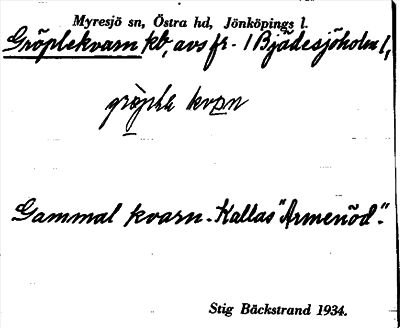 Myresjö sn, Östra hd, Jönköpings l.
Gröplekvarn kb, avs fr. 1 Bjädesjöholm 1,
gröplə kvan
Gammal kvarn. Kallas "Armenöd".
Stig Bäckstrand 1934.